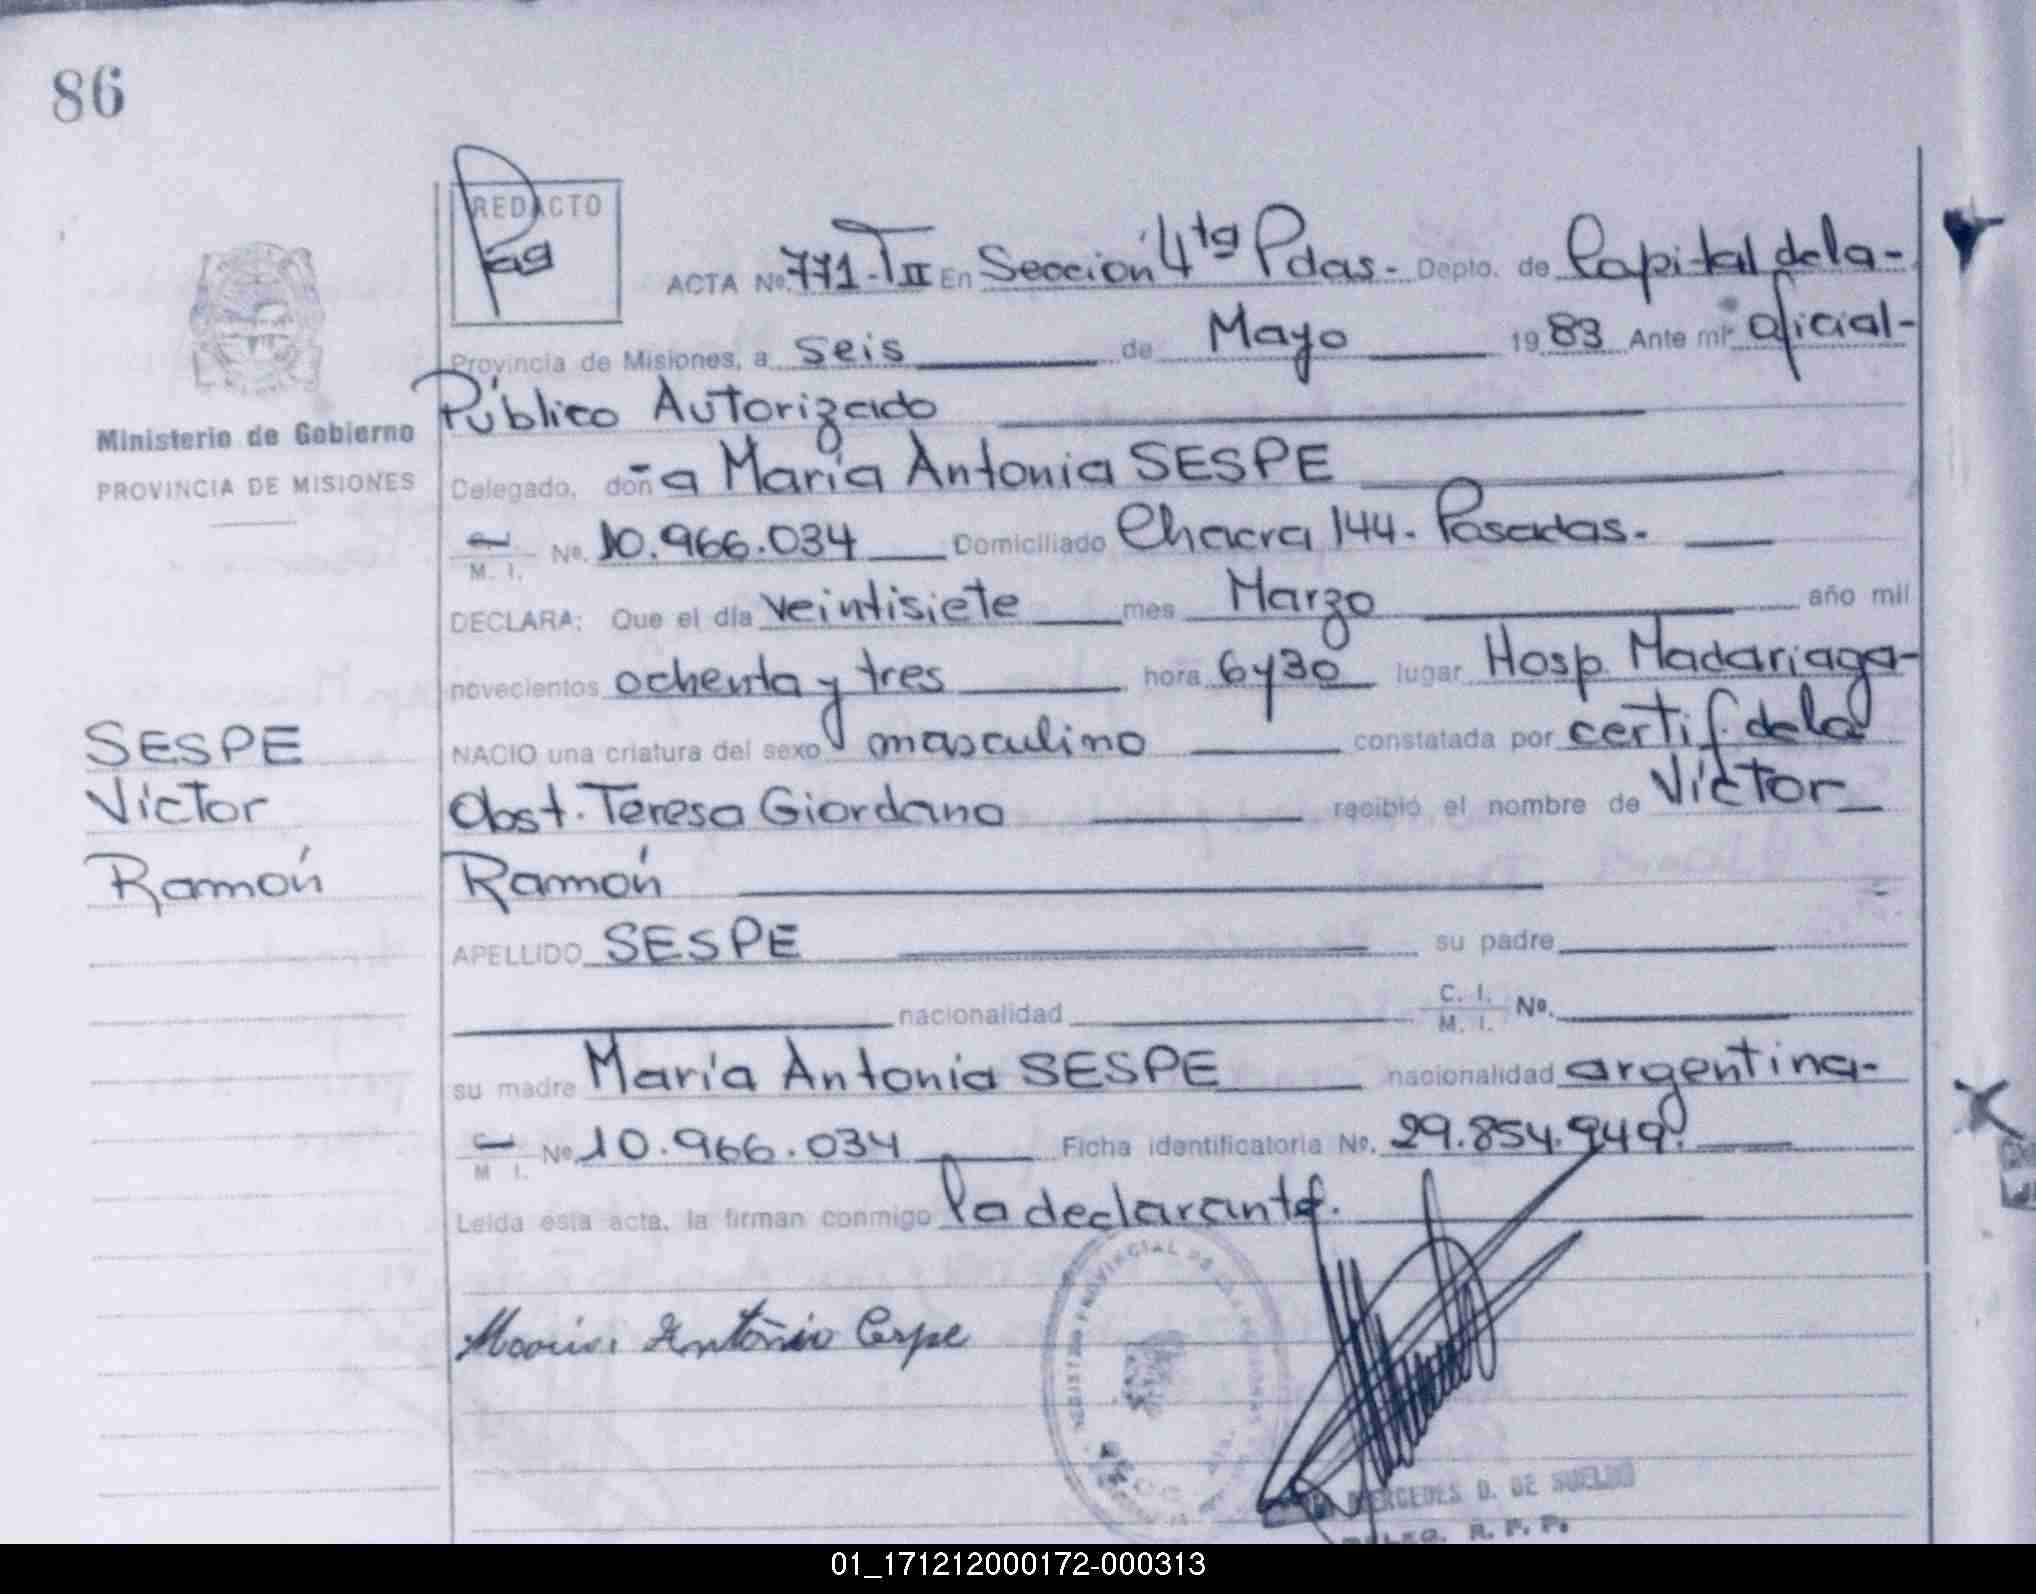 86
REDACTO
Pag
ACTA Nº 771-TII En Sección 4ta Pdas.- Depto. de Capital de la-
Provincia de Misiones, a seis de Mayo 1983 Ante mí Oficial-
Público Autorizado
Ministerio de Gobierno
PROVINCIA DE MISIONES
Delegado, doña María Antonia SESPE
M. I. Nº. 10.966.034 Domiciliado Chacra 144.- Posadas.-
DECLARA: Que el día veintisiete mes Marzo año mil
novecientos ochenta y tres hora 6y30 lugar Hosp. Madariaga-
NACIO una criatura del sexo masculino constatada por certif. de la
Obst. Teresa Giordano recibió el nombre de Víctor
Ramón
SESPE
Víctor
Ramón
APELLIDO SESPE su padre
nacionalidad C. I. M. I. Nº.
su madre María Antonia SESPE nacionalidad argentina.-
M I. Nº 10.966.034 Ficha identificatoria Nº. 29.854.949.
Leida esta acta, la firman conmigo la declarante.
Maria Antonia Cespe
PROVINCIAL DE LAS PERSONAS
MERCEDES D. DE SUELDO
DELEG. R. P. P.
01_171212000172-000313